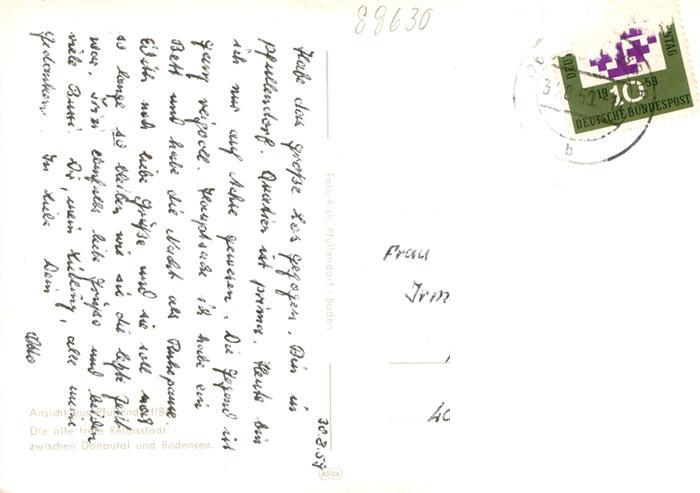 88630
Habe das große Los gezogen. Bin in
Pfullendorf. Quartier ist prima. Heute bin
ich nur auf Achse gewesen. Die Gegend ist
ganz reizvoll. Hauptsache ich habe ein
Bett und habe die Nacht als Ruhepause.
Edith noch liebe Grüße und sie soll noch
so lange so bleiben wie sie die letzte Zeit
war. ebenfalls liebe Grüße und beiden
viele Bussi. Dir, mein Liebling, alle meine
Gedanken. In Liebe Dein
Otto
30.8.59
Foto-Rist, Pfullendorf / Baden
Ansicht aus Pfullendorf/B
Die alte freie Reichsstadt
zwischen Donautal und Bodensee.
ADOX
1959
10
DEUTSCHE BUNDESPOST
b
Frau
Irm